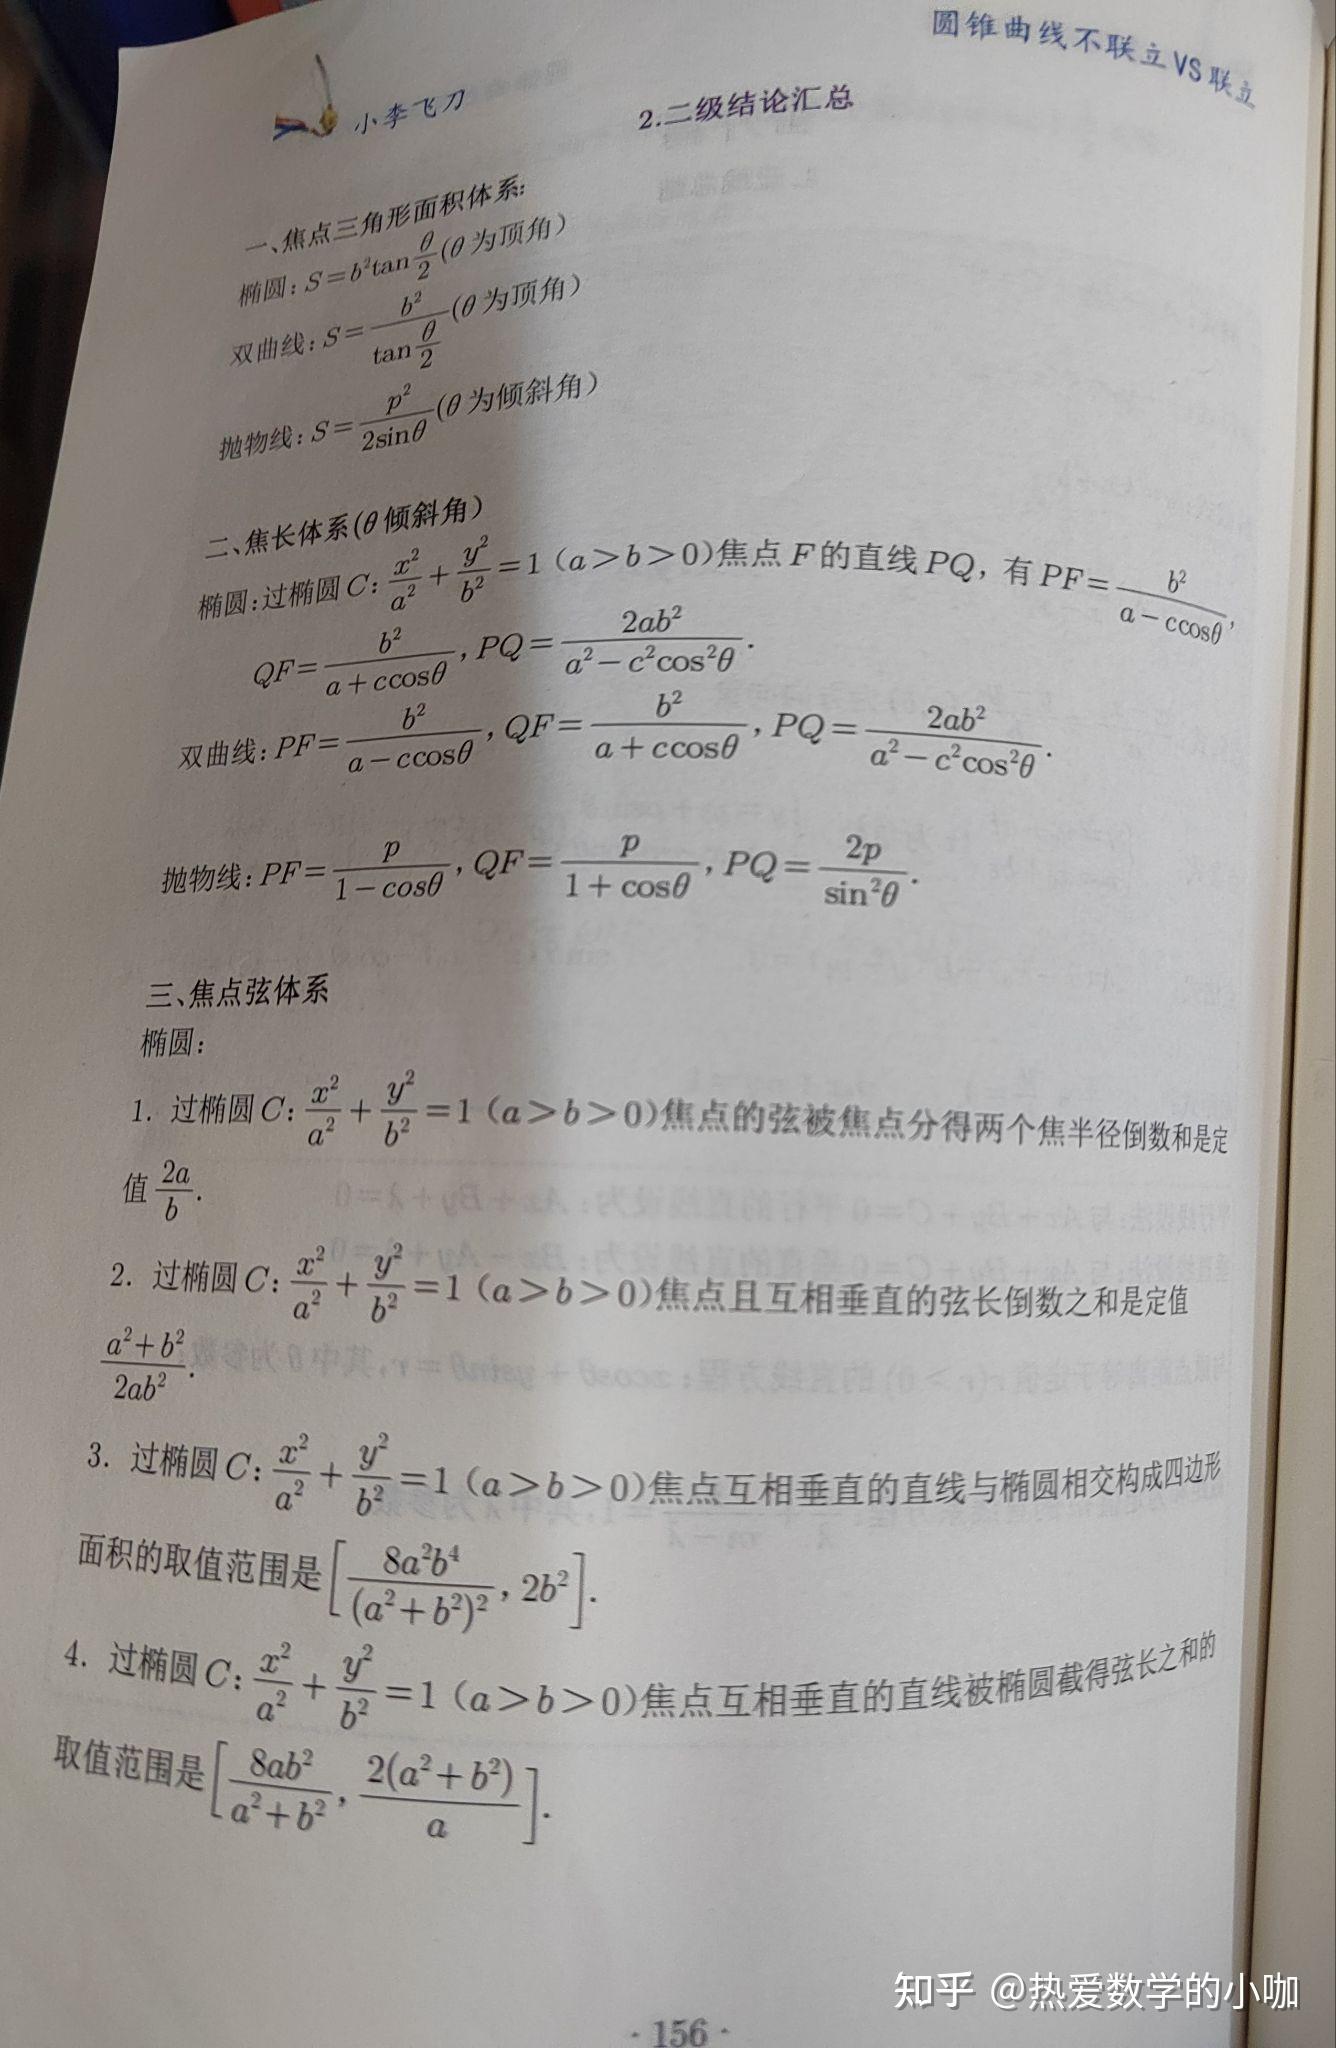 圆锥曲线不联立VS联立
小李飞刀
2.二级结论汇总
一、焦点三角形面积体系:
椭圆: S=b²tan(θ/2)(θ为顶角)
双曲线: S=b²/tan(θ/2)(θ为顶角)
抛物线: S=p²/(2sinθ)(θ为倾斜角)
二、焦长体系(θ倾斜角)
椭圆:过椭圆C: x²/a²+y²/b²=1 (a>b>0)焦点F的直线PQ, 有PF=b²/(a-ccosθ),
QF=b²/(a+ccosθ), PQ=2ab²/(a²-c²cos²θ).
双曲线: PF=b²/(a-ccosθ), QF=b²/(a+ccosθ), PQ=2ab²/(a²-c²cos²θ).
抛物线: PF=p/(1-cosθ), QF=p/(1+cosθ), PQ=2p/sin²θ.
三、焦点弦体系
椭圆:
1. 过椭圆C: x²/a²+y²/b²=1 (a>b>0)焦点的弦被焦点分得两个焦半径倒数和是定
值2a/b.
2. 过椭圆C: x²/a²+y²/b²=1 (a>b>0)焦点且互相垂直的弦长倒数之和是定值
(a²+b²)/(2ab²).
3. 过椭圆C: x²/a²+y²/b²=1 (a>b>0)焦点互相垂直的直线与椭圆相交构成四边形
面积的取值范围是[8a²b⁴/(a²+b²)², 2b²].
4. 过椭圆C: x²/a²+y²/b²=1 (a>b>0)焦点互相垂直的直线被椭圆截得弦长之和的
取值范围是[8ab²/(a²+b²), 2(a²+b²)/a].
知乎 @热爱数学的小咖
·156·